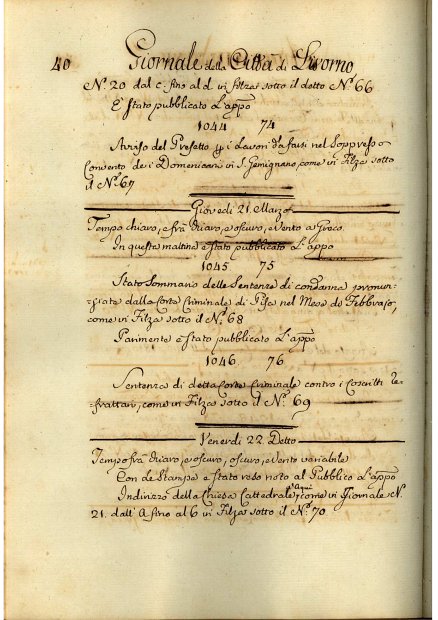 40 Giornale della Città di Livorno
N.º 20 dal c. fino al d. in filza sotto il detto Nº 66
E' stato pubblicato l'appo
1044 74
Avviso del Prefetto p i Lavori da farsi nel Soppresso
Convento dei Domenicani in S. Gemignano, come in Filza sotto
il Nº 67
Giovedi 21 Marzo
Tempo chiaro, e frà chiaro, e oscuro, e vento a Greco
In questa mattina è stato pubblicato l'appo
1045 75
Stato Sommario delle Sentenze di condanna pronun-
ziata dalla Corte Criminale di Pisa nel Mese di Febbraio,
come in Filza sotto il Nº 68
Parimente è stato pubblicato l'appo
1046 76
Sentenza di detta Corte Criminale contro i Coscritti Re-
frattari, come in Filza sotto il Nº 69
Venerdi 22 Detto
Tempo frà chiaro, e oscuro, oscuro, e vento variabile
Con le Stampe è stato reso noto al Pubblico l'appo
Indirizzo della Chiesa Cattedrale, come in Giornale N.
21. dall' A fino al 6 in Filza sotto il Nº 70